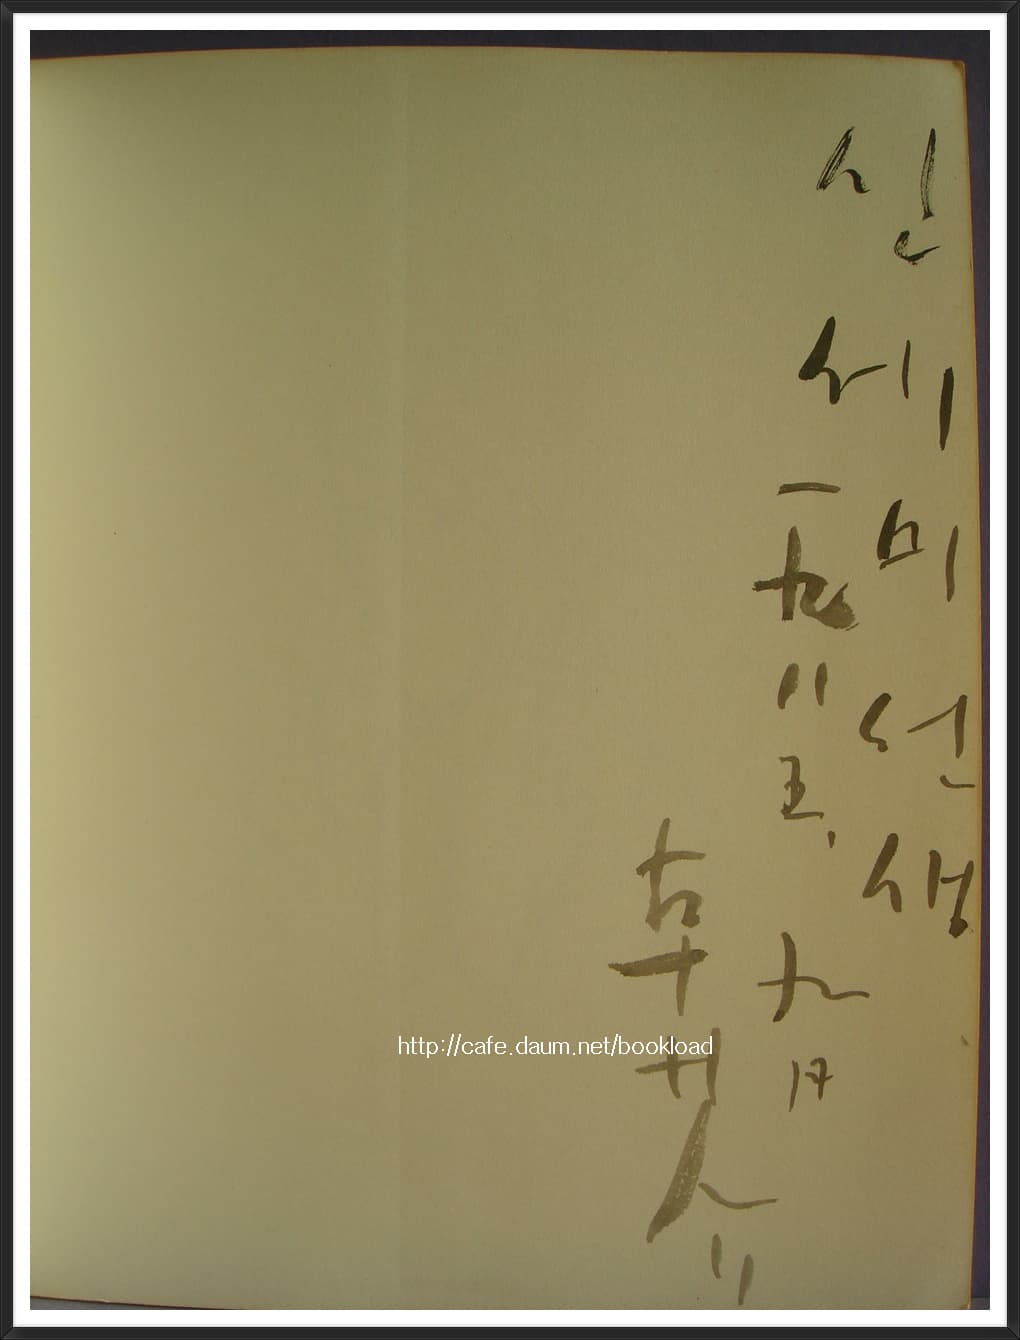 신세미선생
一九八五、九月
http://cafe.daum.net/bookload